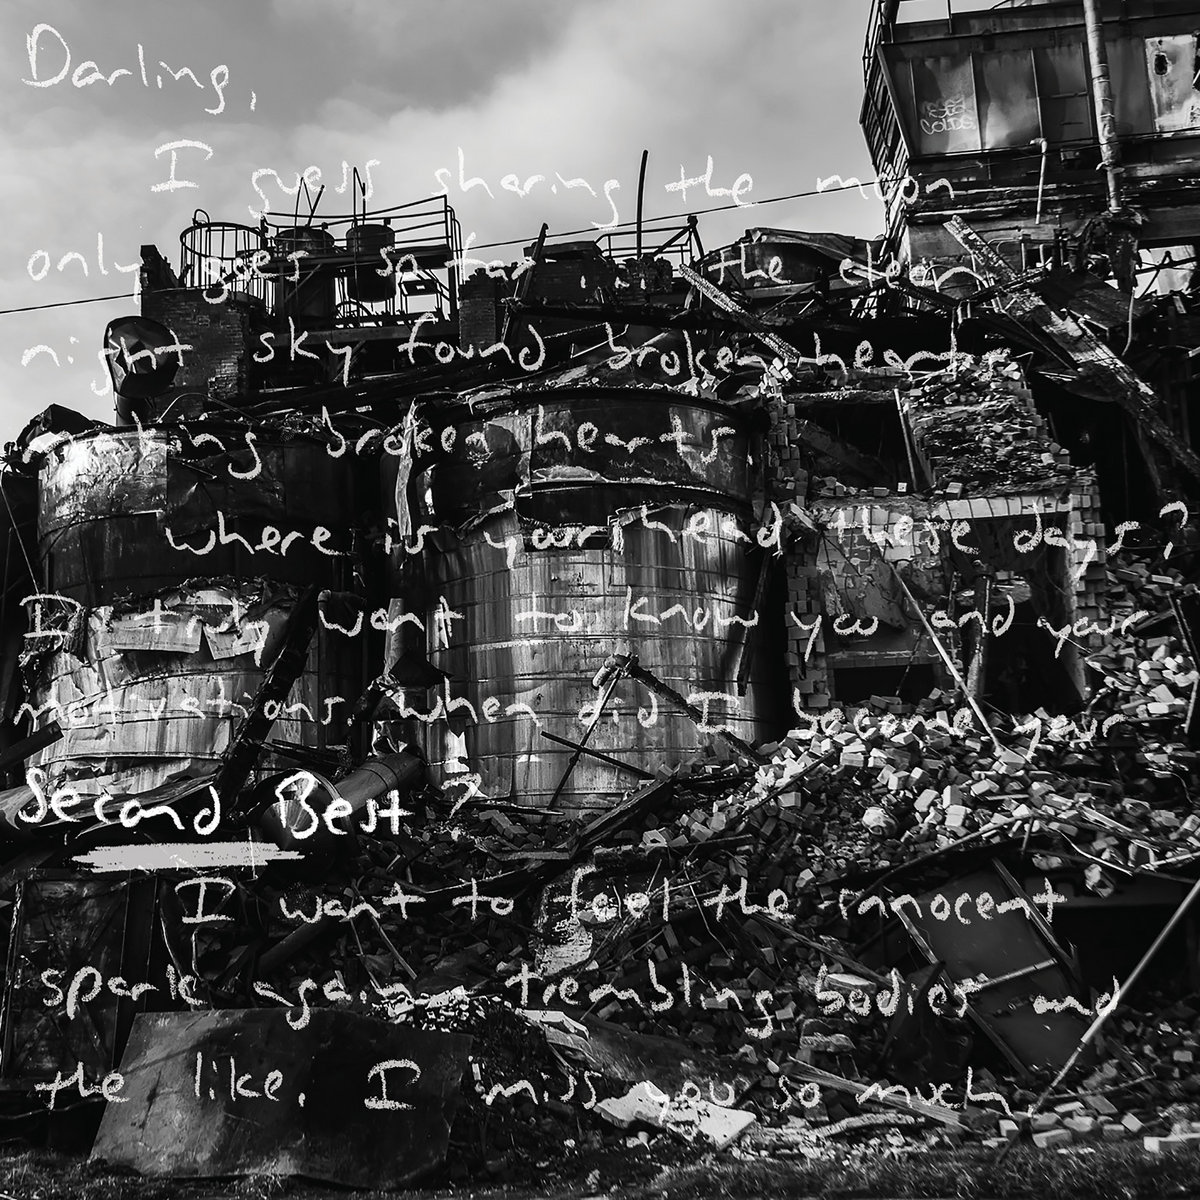 Darling,
I guess sharing the moon
only goes so far the clean
night sky found broken hearts
making broken hearts.
where is your head these days?
I truly want to know you and your
motivations. when did I become your
Second Best?
I want to feel the innocent
spark again. trembling bodies and
the like. I miss you so much.